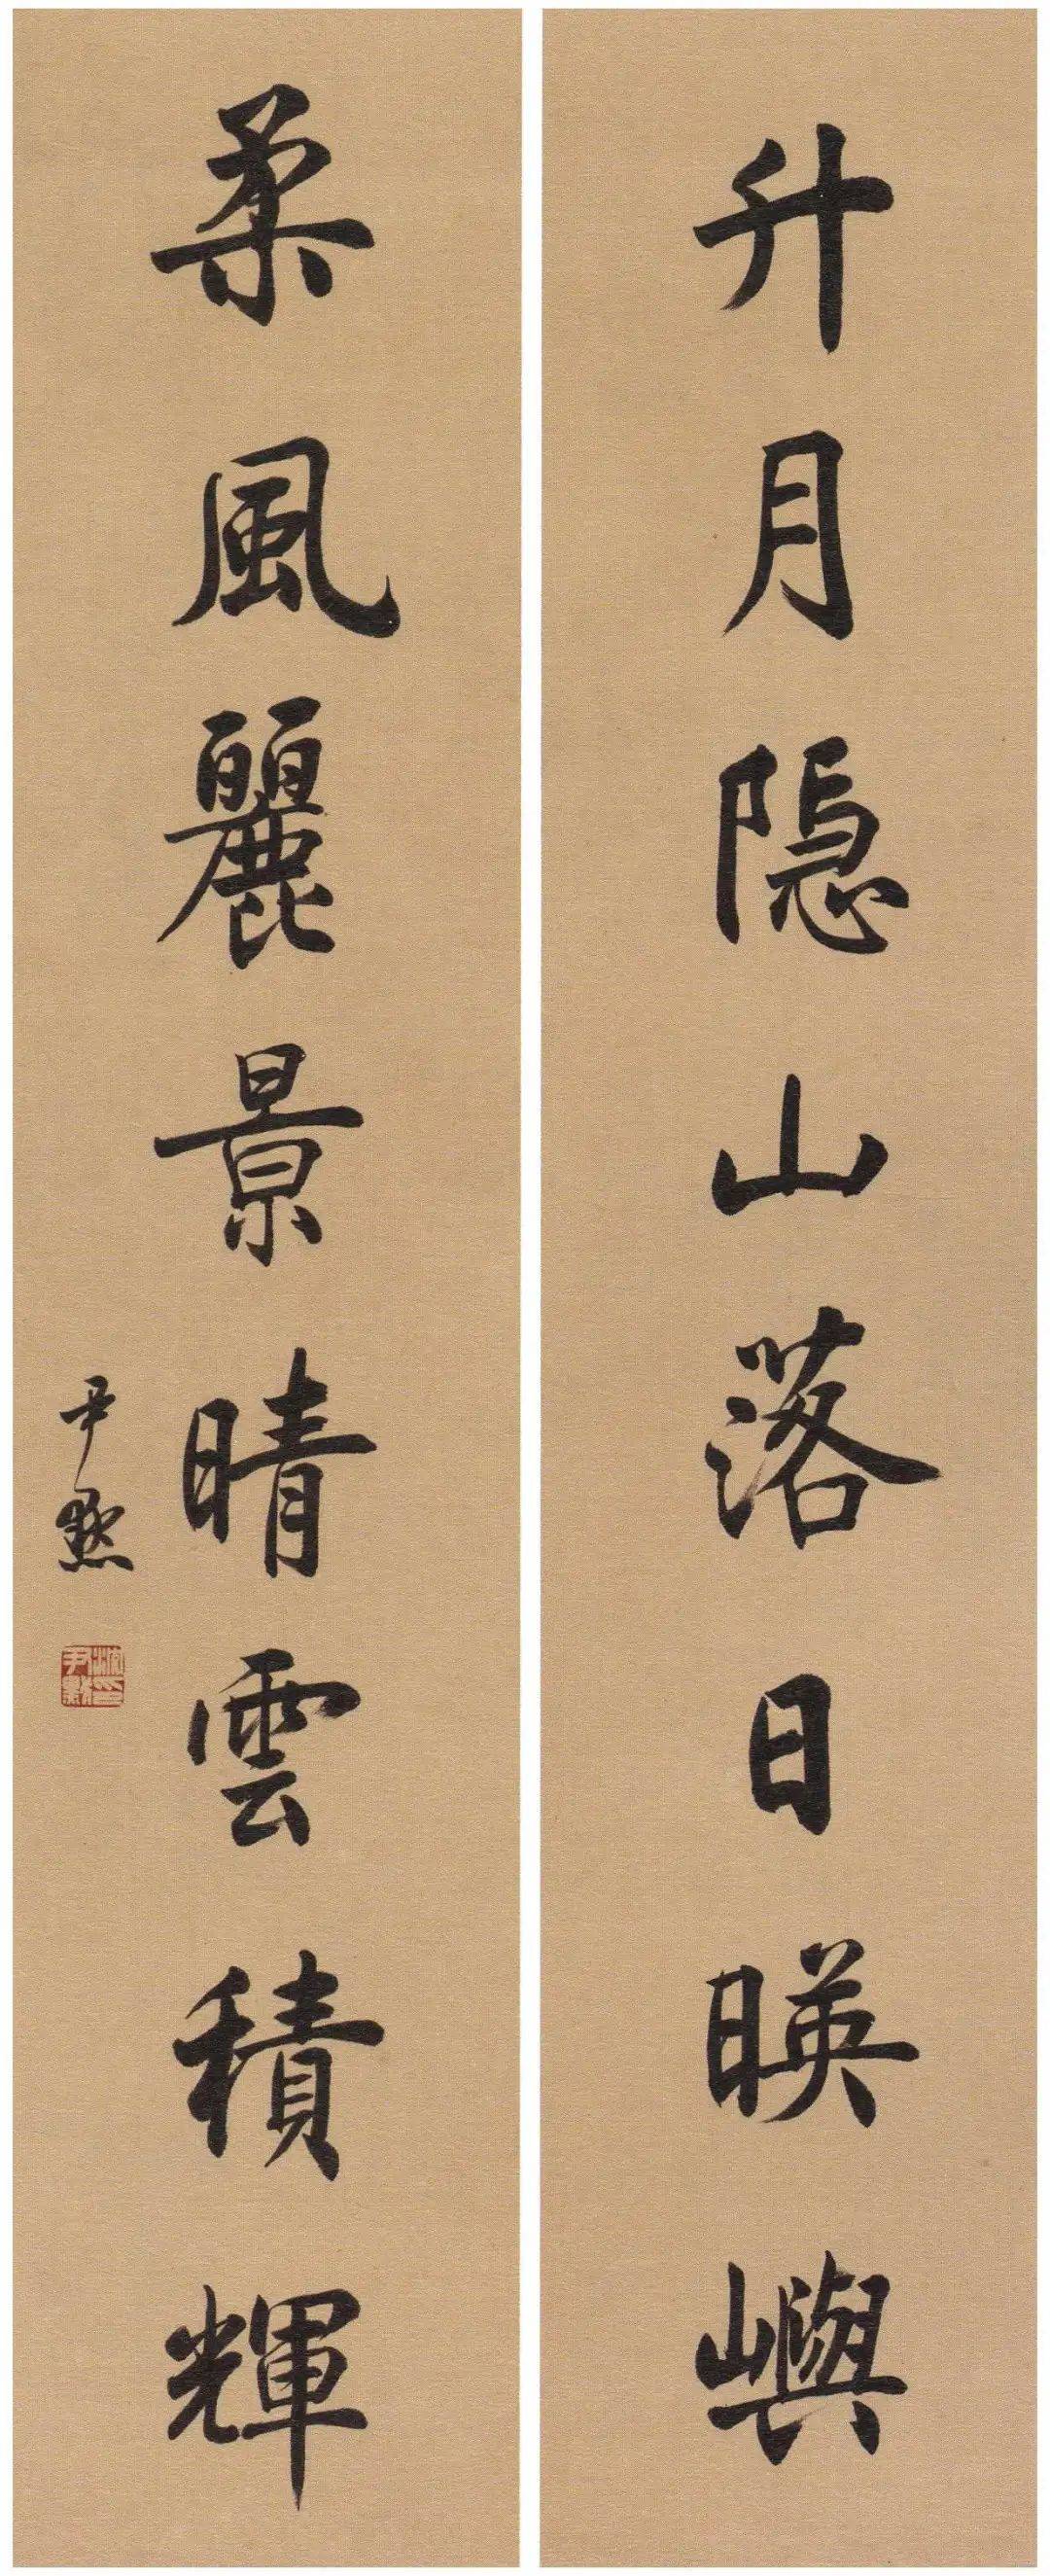 升月隐山落日暎嶼
柔風麗景晴雲積輝
尹默
沈尹默印